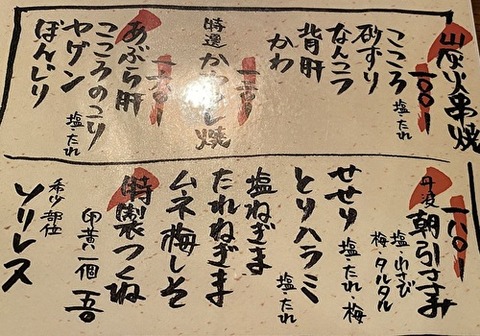 炭火串焼
一〇〇
こころ 塩・たれ
砂ずり
なんこつ
背肝
かわ
特選
し焼
一六〇
あぶら肝
こころのこり
ヤゲン 塩・たれ
ぼんじり
一八〇
丹波 朝引ささみ
塩・わさび
梅・タルタル
せせり 塩 たれ 梅
とりハラミ 塩・たれ
塩ねぎま
たれねぎま
ムネ梅しそ
特製つくね
卵黄一個
希少部位
ソリレス